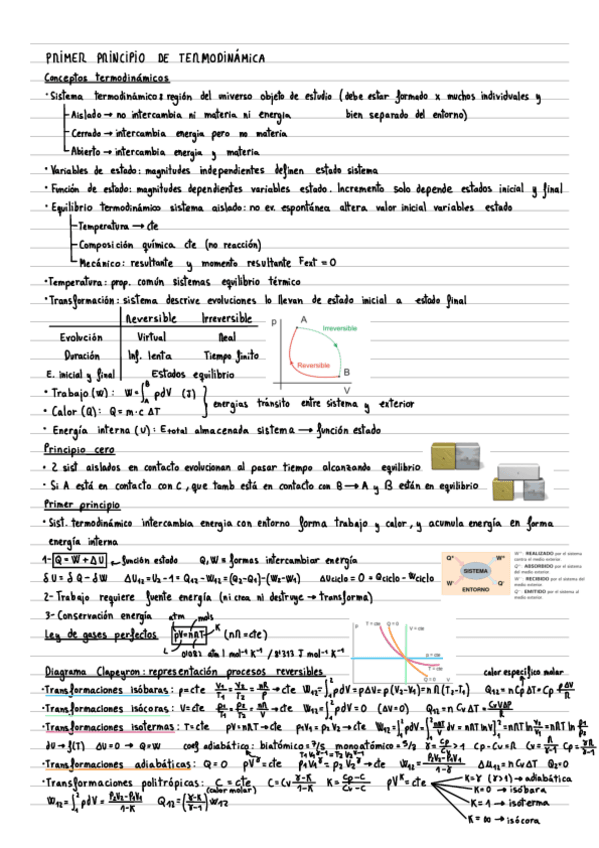 PRIMER PRINCIPIO DE TERMODINÁMICA
Conceptos termodinámicos
· Sistema termodinámico: región del universo objeto de estudio (debe estar formado x muchos individuales y
Aislado → no intercambia ni materia ni energía bien separado del entorno)
Cerrado → intercambia energía pero no materia
Abierto → intercambia energía y materia
· Variables de estado: magnitudes independientes definen estado sistema
· Función de estado: magnitudes dependientes variables estado. Incremento solo depende estados inicial y final
· Equilibrio termodinámico sistema aislado: no ev. espontánea altera valor inicial variables estado
Temperatura → cte
Composición química cte (no reacción)
Mecánico: resultante y momento resultante Fext = 0
· Temperatura: prop. común sistemas equilibrio térmico
· Transformación: sistema descrive evoluciones lo llevan de estado inicial a estado final
Reversible Irreversible
Evolución Virtual Real
Duración Inf. lenta Tiempo finito
E. inicial y final Estados equilibrio
p A Irreversible
Reversible B
V
· Trabajo (W): W = ∫ₐᴮ pdV (J)
energías tránsito entre sistema y exterior
· Calor (Q): Q = m·c ΔT
· Energía interna (U): Etotal almacenada sistema → función estado
Principio cero
· 2 sist aislados en contacto evolucionan al pasar tiempo alcanzando equilibrio
· Si A está en contacto con C, que tamb está en contacto con B → A y B están en equilibrio
Primer principio
· Sist. termodinámico intercambia energia con entorno forma trabajo y calor, y acumula energía en forma
energía interna
1- Q = W + ΔU función estado Q, W = formas intercambiar energía
δU = δQ - δW ΔU₁₂ = U₂ - ₁ = Q₁₂ - W₁₂ = (Q₂-Q₁) - (W₂-W₁) ΔUciclo = 0 = Qciclo - Wciclo
Q⁺ W⁺
SISTEMA
W⁻ Q⁻
ENTORNO
W⁺: REALIZADO por el sistema
contra el medio exterior
Q⁺: ABSORBIDO por el sistema
del medio exterior
W⁻: RECIBIDO por el sistema del
medio exterior
Q⁻: EMITIDO por el sistema al
medio exterior
2- Trabajo requiere fuente energía (ni crea ni destruye → transforma)
3- Conservación energía
atm mols
Ley de gases perfectos pV = nRT K (nR = cte)
L 0'082 atm l mol⁻¹ K⁻¹ / 8'313 J mol⁻¹ K⁻¹
p T = cte Q = 0 V = cte
p = cte
T = cte
Q = 0 V
Diagrama Clapeyron: representación procesos reversibles calor específico molar
· Transformaciones isóbaras: p = cte V₁/T₁ = V₂/T₂ = nR/p → cte W₁₂ = ∫₁² pdV = pΔV = p(V₂-V₁) = nR(T₂-T₁) Q₁₂ = nCpΔT
· Transformaciones isócoras: V = cte p₁/T₁ = p₂/T₂ = nR/V → cte W₁₂ = ∫₁² pdV = 0 (ΔV=0) Q₁₂ = nCvΔT
· Transformaciones isotermas: T = cte pV = nRT → cte p₁V₁ = p₂V₂ → cte W₁₂ = ∫₁² pdV = ∫ nRT/V dV = nRT lnV]₁² = nRT ln V₂/V₁ = nRT ln
dU → f(T) ΔU = 0 → Q = W coef adiabático: biatómico = 7/5 monoatómico = 5/2 γ = Cp/Cv > 1 Cp - Cv = R Cv = R/γ-1 Cp = γR/γ-1
· Transformaciones adiabáticas: Q = 0 pVᵞ = cte p₁V₁ᵞ = p₂V₂ᵞ → cte W₁₂ = p₂V₂-p₁V₁/1-γ ΔU₁₂ = nCvΔT Q₁₂ = 0
· Transformaciones politrópicas: C = cte (calor molar) C = Cv γ-K/1-K K = Cp-C/Cv-C pVᴷ = cte K = γ (γ>1) → adiabática
K = 0 → isóbara
W₁₂ = ∫₁² pdV = p₂V₂-p₁V₁/1-K Q₁₂ = (γ-K/γ-1) W₁₂ K = 1 → isoterma
K = ∞ → isócora